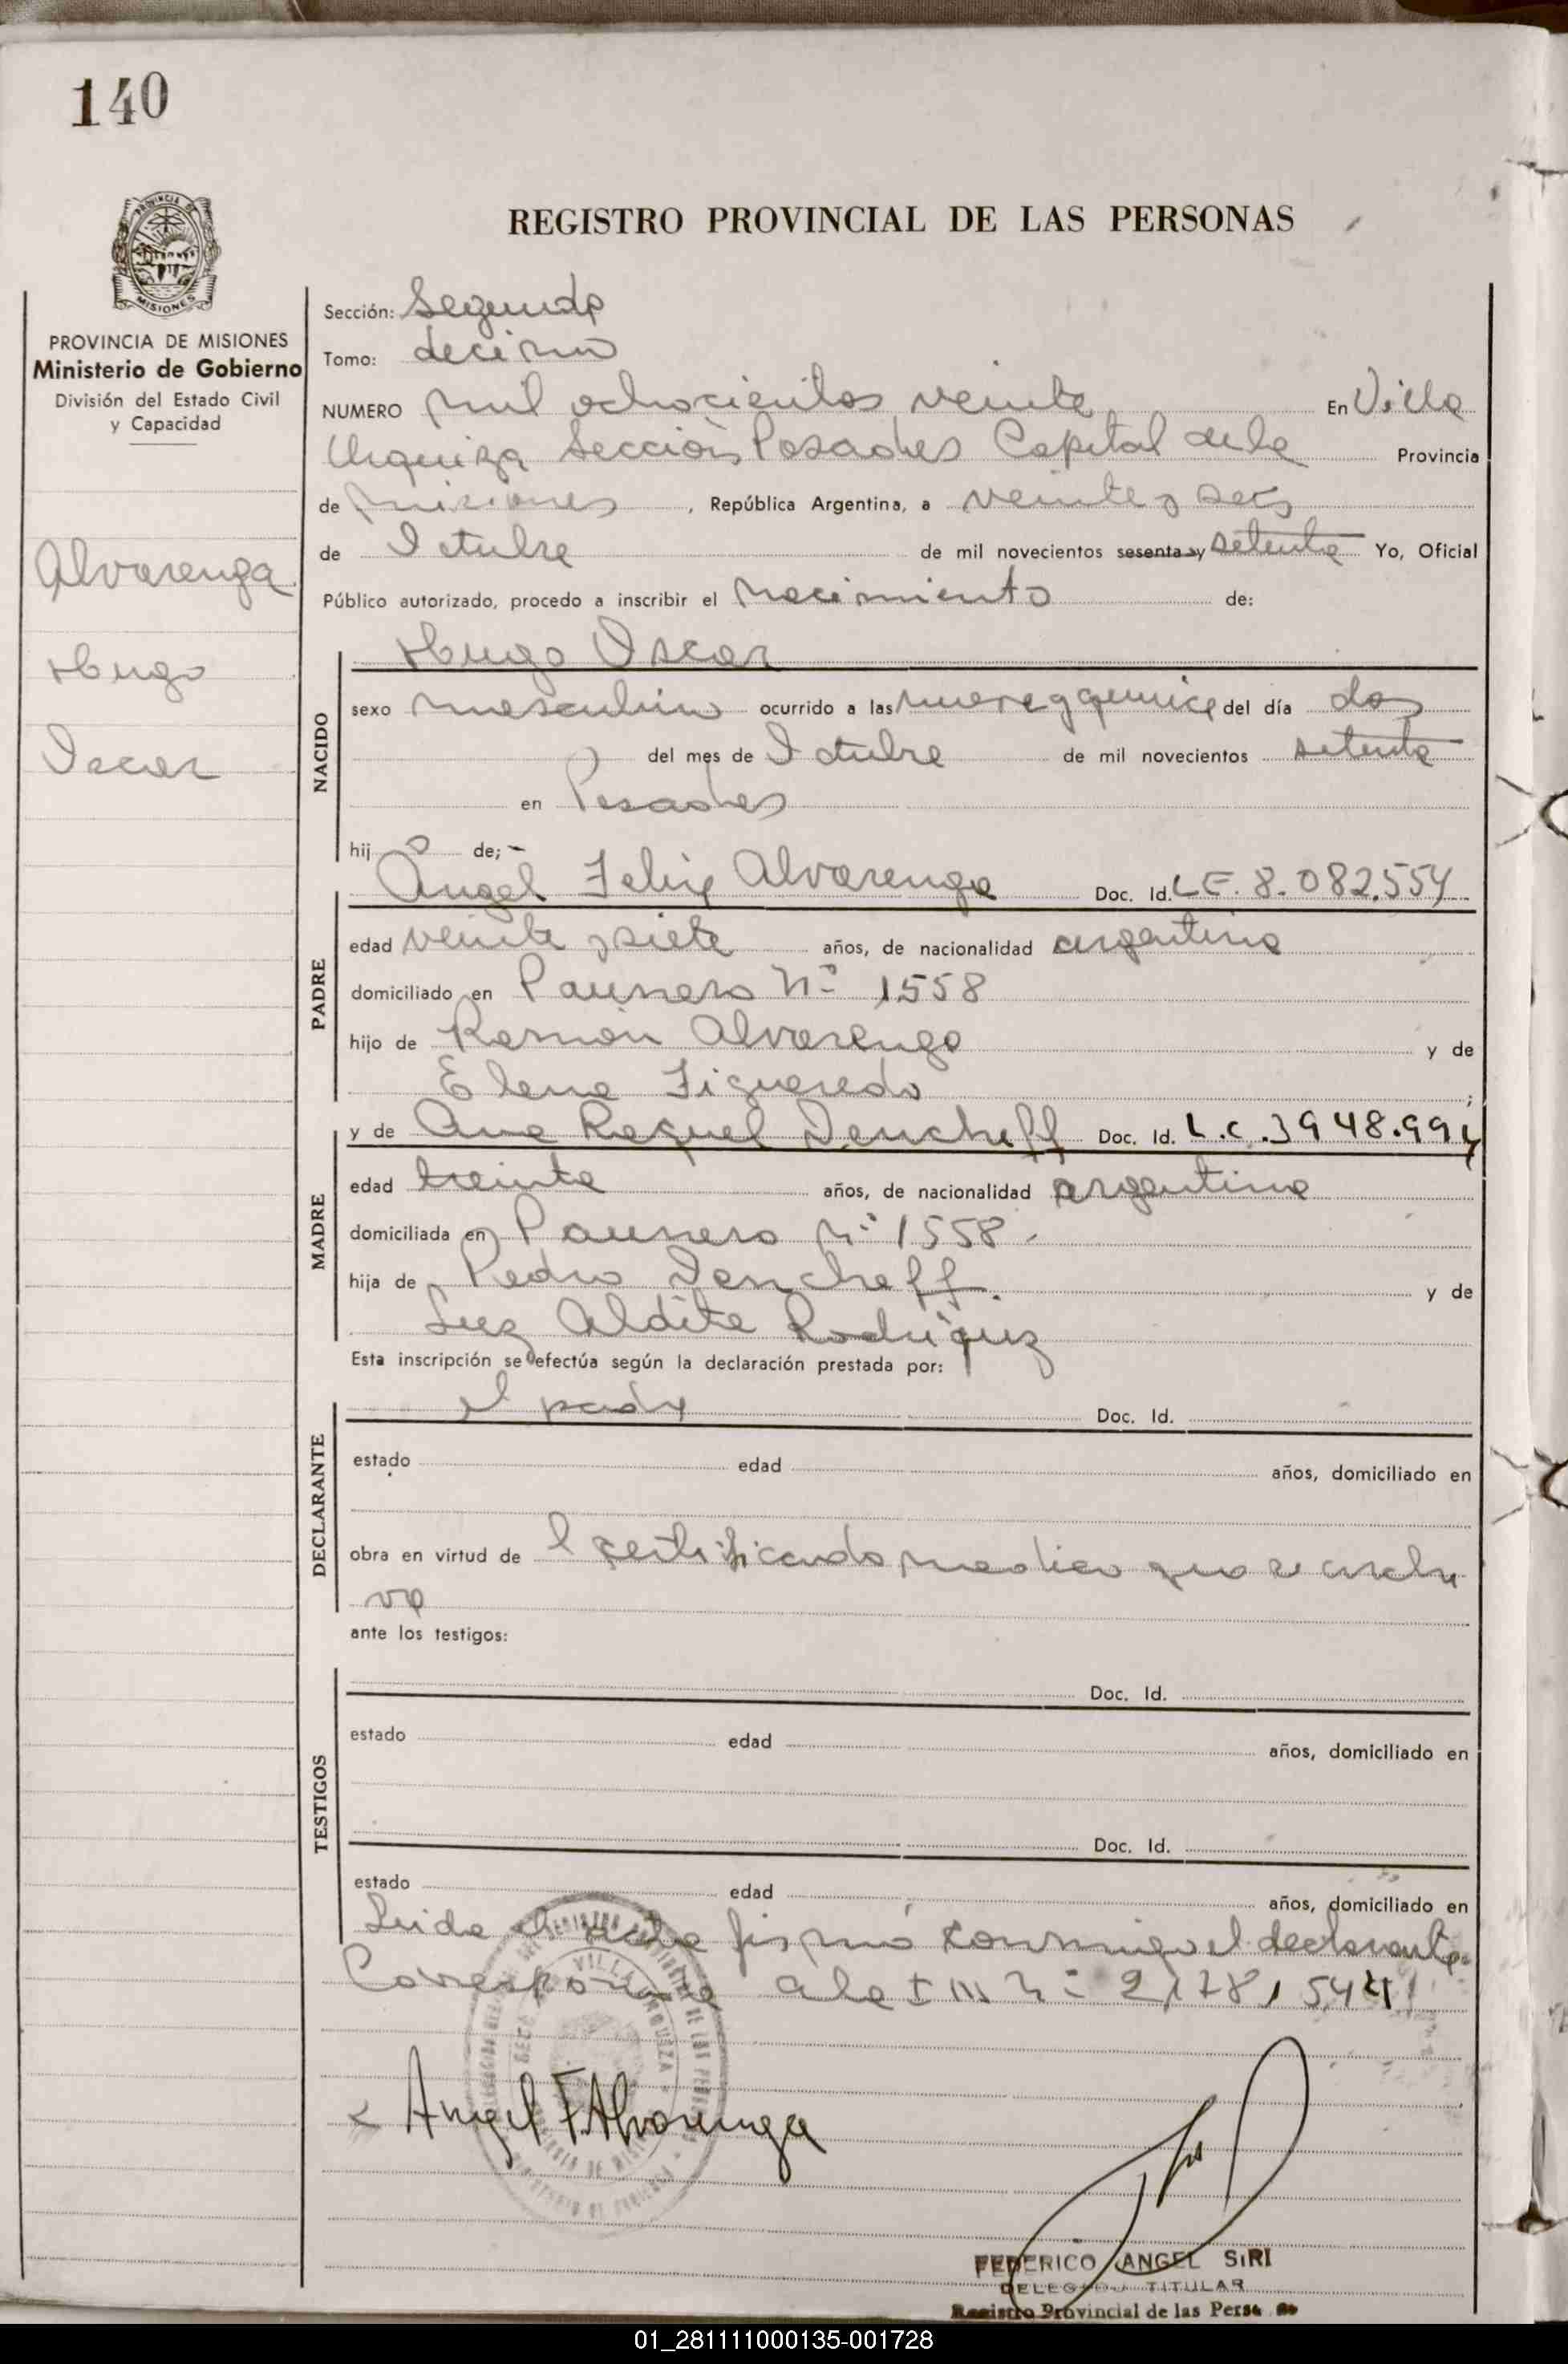 140
PROVINCIA DE MISIONES
REGISTRO PROVINCIAL DE LAS PERSONAS
PROVINCIA DE MISIONES
Ministerio de Gobierno
División del Estado Civil
y Capacidad
Alvarenga
Hugo
Oscar
Sección: Segunda
Tomo: decimo
NUMERO mil ochocientos veinte En Villa
Urquiza Sección Posadas Capital de la Provincia
de Misiones, República Argentina, a veinte y seis
de Octubre de mil novecientos sesenta y setenta Yo, Oficial
Público autorizado, procedo a inscribir el nacimiento de:
NACIDO
Hugo Oscar
sexo masculino ocurrido a las nueve y quince del día dos
del mes de Octubre de mil novecientos setenta
en Posadas
hijo de; -
PADRE
Angel Felix Alvarenga Doc. Id. L.E. 8.082.554
edad veinte y siete años, de nacionalidad argentina
domiciliado en Paunero Nº 1558
hijo de Ramón Alvarenga y de
Elena Figueredo ;
MADRE
y de Ana Raquel Dencheff Doc. Id. L.C. 3948.994
edad treinta años, de nacionalidad argentina
domiciliada en Paunero Nº 1558.
hija de Pedro Dencheff. y de
Luz Aldita Rodriguez
Esta inscripción se efectúa según la declaración prestada por:
DECLARANTE
el padre Doc. Id.
estado edad años, domiciliado en
obra en virtud de l certificado medico que se archi
va
ante los testigos:
TESTIGOS
Doc. Id.
estado edad años, domiciliado en
Doc. Id.
estado edad años, domiciliado en
Leida el acta firmó conmigo el declarante.
Corresponde a la I M Nº 2178,544
Angel F. Alvarenga
FEDERICO ANGEL SIRI
DELEGADO TITULAR
Registro Provincial de las Personas
01_281111000135-001728